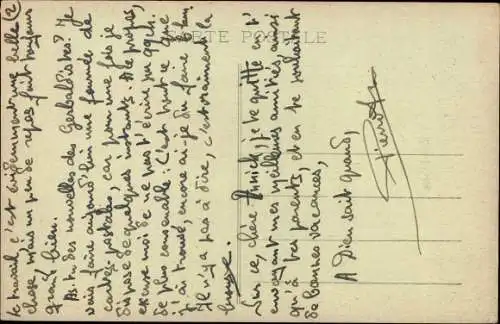 CARTE POSTALE
(2
le travail, c'est évidemment une belle
chose, mais un peu de repos fait toujours
grand bien.
As-tu des nouvelles des Garbaldistes? Je
vais faire aujourd'hui une fournée de
cartes postales, car pour une fois je
dispose de quelques instants. A ce propos,
excuse moi de ne pas t'écrire sur qqch.
de plus convenable: C'est tout ce que
j'ai trouvé, encore ai-je du faire
Il n'y a pas à dire, c'est vraiment la
brousse.
Sur ce, chère Annick, je te quitte en t'
envoyant mes meilleures amitiés, ainsi
qu'à tes parents, et en te souhaitant
de bonnes vacances,
A Dieu sait quand,
Pierrot